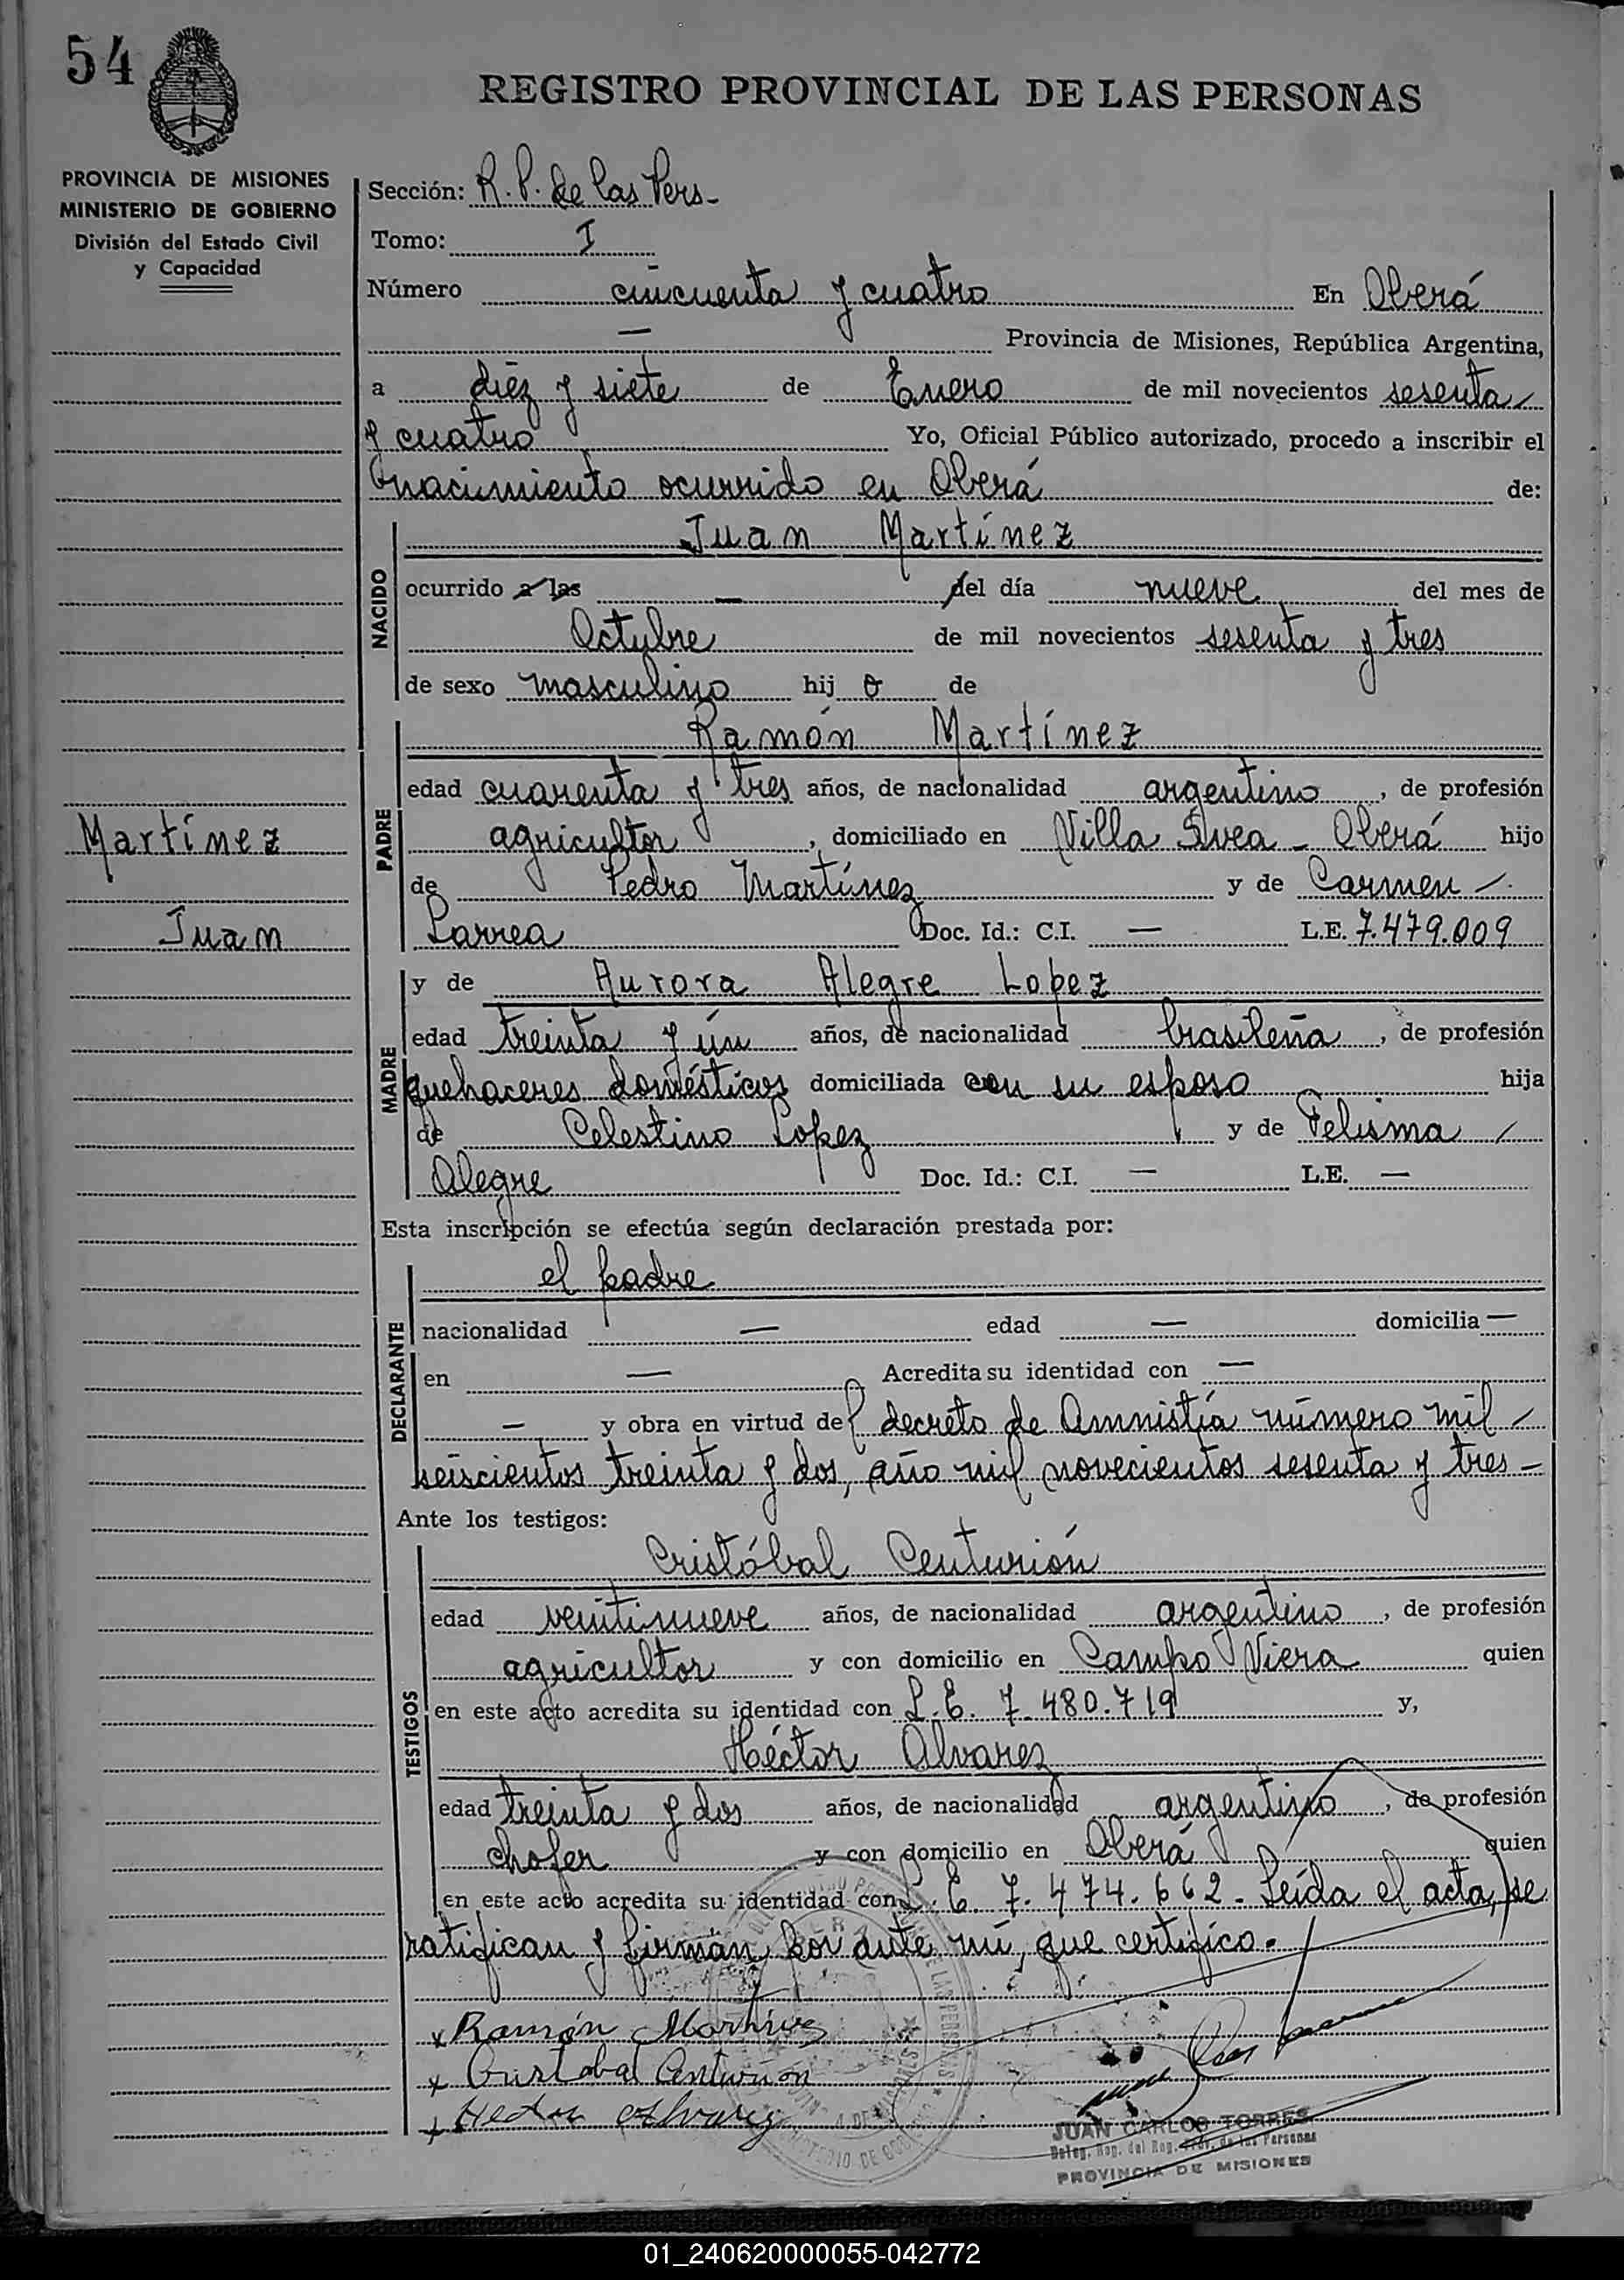 54
REGISTRO PROVINCIAL DE LAS PERSONAS
PROVINCIA DE MISIONES
MINISTERIO DE GOBIERNO
División del Estado Civil
y Capacidad
Sección: R. P. de las Pers-
Tomo: I
Número cincuenta y cuatro En Oberá
— Provincia de Misiones, República Argentina,
a diez y siete de Enero de mil novecientos sesenta
y cuatro Yo, Oficial Público autorizado, procedo a inscribir el
nacimiento ocurrido en Oberá de:
NACIDO
Juan Martínez
ocurrido a las — del día nueve del mes de
Octubre de mil novecientos sesenta y tres
de sexo masculino hij o de
PADRE
Ramón Martínez
edad cuarenta y tres años, de nacionalidad argentino, de profesión
agricultor, domiciliado en Villa Svea - Oberá hijo
de Pedro Martínez y de Carmen
Larrea Doc. Id.: C.I. — L.E. 7.479.009
Martínez
Juan
MADRE
y de Aurora Alegre Lopez
edad treinta y ún años, de nacionalidad brasileña, de profesión
quehaceres domésticos domiciliada con su esposo hija
de Celestino Lopez y de Felisma
Alegre Doc. Id.: C.I. — L.E. —
Esta inscripción se efectúa según declaración prestada por:
DECLARANTE
el padre
nacionalidad — edad — domicilia —
en — Acredita su identidad con —
— y obra en virtud del decreto de Amnistía número mil
seiscientos treinta y dos, año mil novecientos sesenta y tres -
Ante los testigos:
TESTIGOS
Cristóbal Centurión
edad veintinueve años, de nacionalidad argentino, de profesión
agricultor y con domicilio en Campo Viera quien
en este acto acredita su identidad con L.E. 7.480.719 y,
Héctor Alvarez
edad treinta y dos años, de nacionalidad argentino, de profesión
chofer y con domicilio en Oberá quien
en este acto acredita su identidad con L.E. 7.474.662 - Leída el acta, se
ratifican y firman por ante mí, que certifico.
x Ramón Martínez
x Cristobal Centurión
x Hector Alvarez
JUAN CARLOS TORRES
PROVINCIA DE MISIONES
01_240620000055-042772